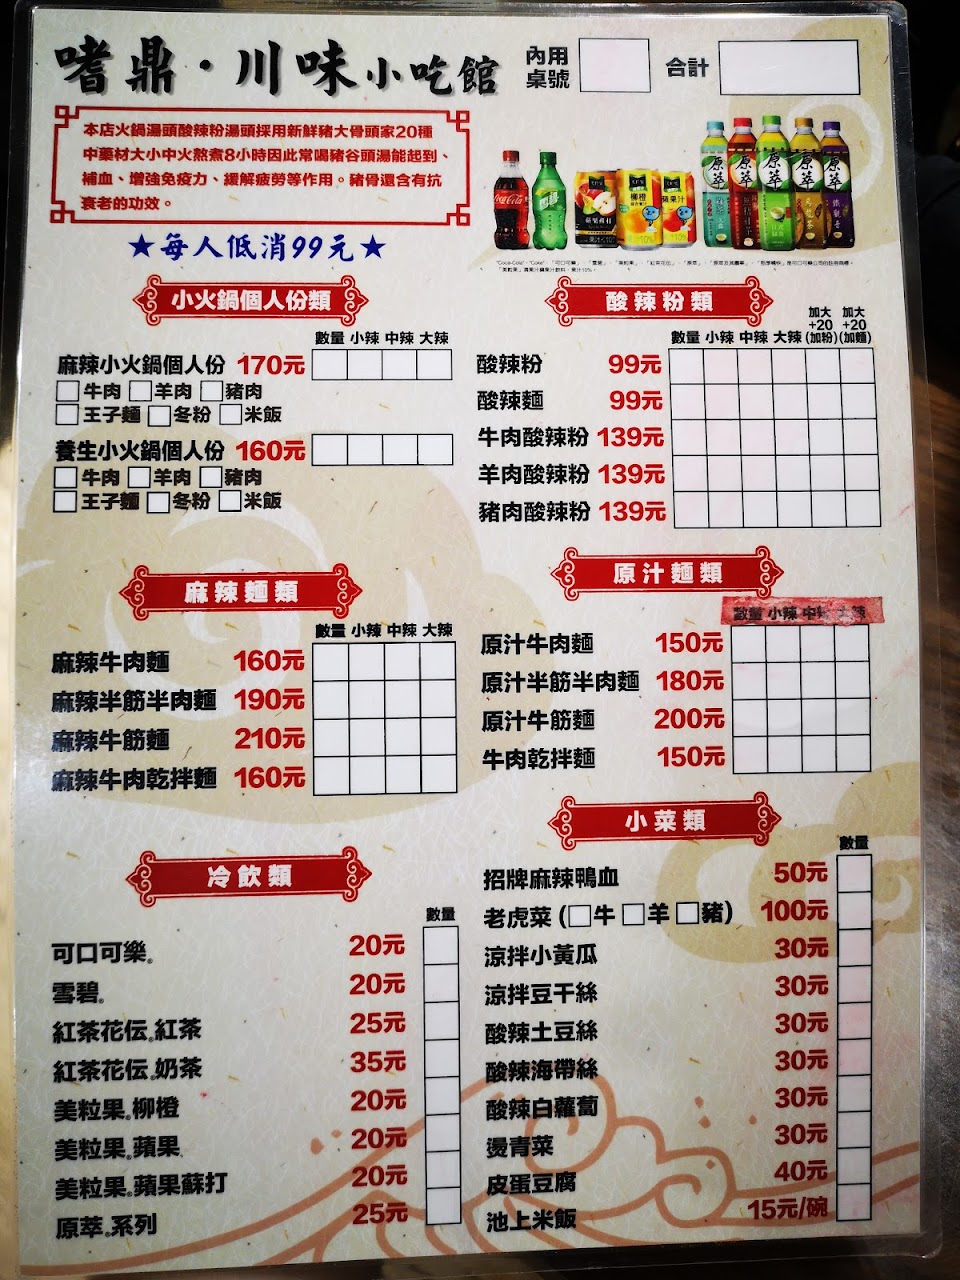 嗜鼎·川味小吃館
內用桌號
合計
本店火鍋湯頭酸辣粉湯頭採用新鮮豬大骨頭家20種
中藥材大小中火熬煮8小時因此常喝豬谷頭湯能起到、
補血、增強免疫力、緩解疲勞等作用。豬骨還含有抗
衰老的功效。
★每人低消99元★
小火鍋個人份類
數量 小辣 中辣 大辣
麻辣小火鍋個人份 170元
□牛肉 □羊肉 □豬肉
□王子麵 □冬粉 □米飯
養生小火鍋個人份 160元
□牛肉 □羊肉 □豬肉
□王子麵 □冬粉 □米飯
酸辣粉類
數量 小辣 中辣 大辣 加大+20(加粉) 加大+20(加麵)
酸辣粉 99元
酸辣麵 99元
牛肉酸辣粉 139元
羊肉酸辣粉 139元
豬肉酸辣粉 139元
麻辣麵類
數量 小辣 中辣 大辣
麻辣牛肉麵 160元
麻辣半筋半肉麵 190元
麻辣牛筋麵 210元
麻辣牛肉乾拌麵 160元
原汁麵類
數量 小辣 中辣 大辣
原汁牛肉麵 150元
原汁半筋半肉麵 180元
原汁牛筋麵 200元
牛肉乾拌麵 150元
冷飲類
數量
可口可樂® 20元
雪碧® 20元
紅茶花伝®紅茶 25元
紅茶花伝®奶茶 35元
美粒果®柳橙 20元
美粒果®蘋果 20元
美粒果®蘋果蘇打 20元
原萃®系列 25元
小菜類
數量
招牌麻辣鴨血 50元
老虎菜 (□牛 □羊 □豬) 100元
涼拌小黃瓜 30元
涼拌豆干絲 30元
酸辣土豆絲 30元
酸辣海帶絲 30元
酸辣白蘿蔔 30元
燙青菜 30元
皮蛋豆腐 40元
池上米飯 15元/碗